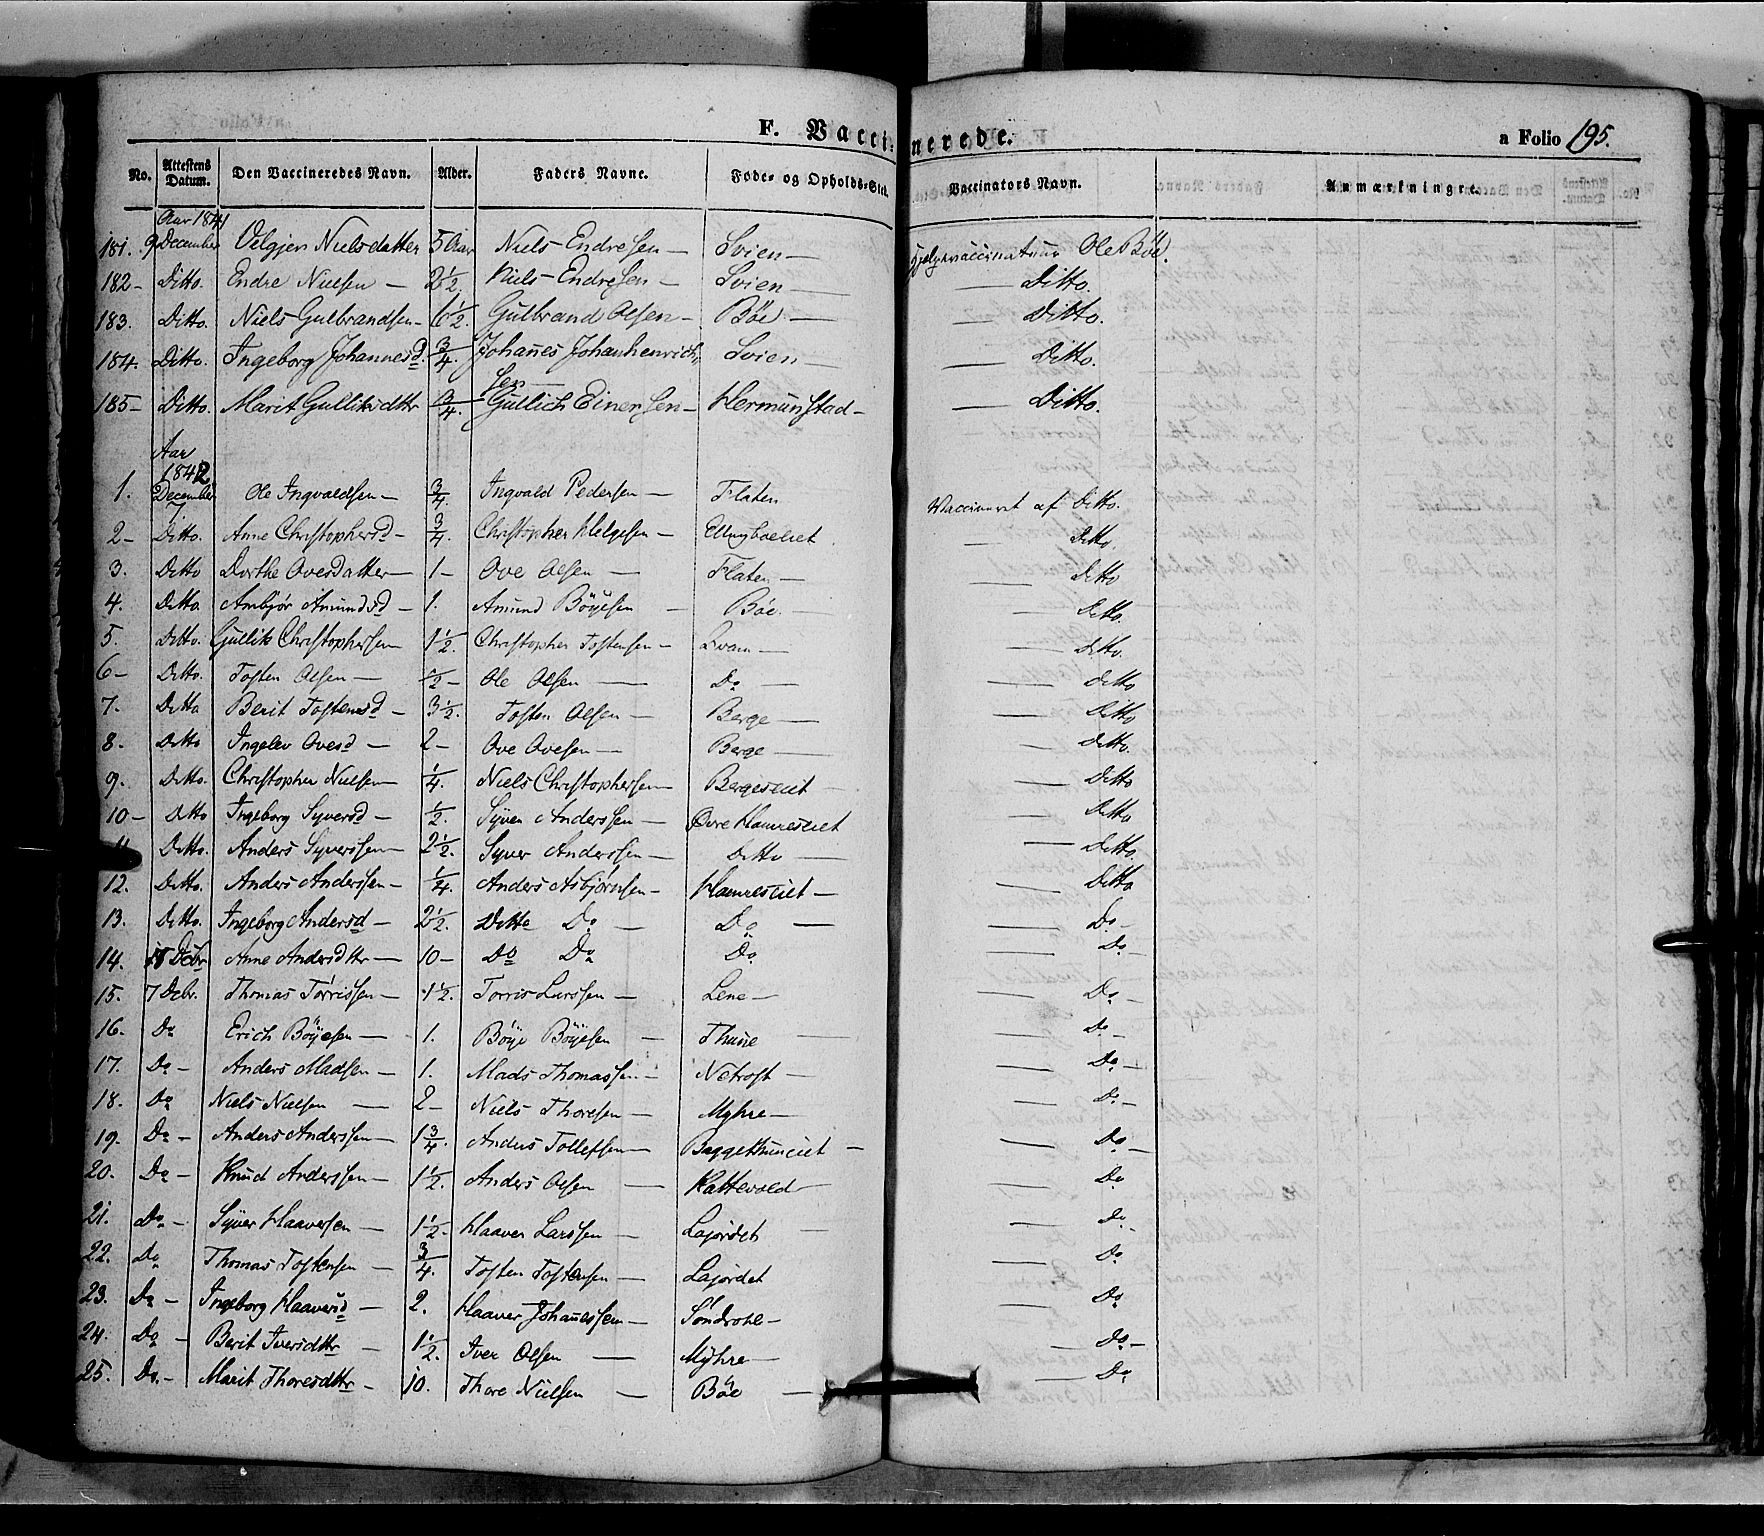 F. Vaccinerede.
a Folio 195.
No. Attestens Datum. Den Vaccineredes Navn. Alder. Faders Navne. Føde- og Opholds-Sted. Vaccinators Navn. Anmærkninger.
Aar 1841
181. 9 December Velgjer Nielsdatter 5 Aar Niels Endresen — Svien — Hjelpevaccinateur Ole Böe.
182 — Ditto. Endre Nielsen — 2 1/2. Niels Endresen — Svien — — Ditto.
183. Ditto. Niels Gulbrandsen — 6 1/2. Gulbrand Olsen — Böe — — Ditto.
184. Ditto. Ingeborg Johannesd. 3/4. Johañes Johanhenrich= Svien — — Ditto.
sen —
185 — Ditto. Marit Gulliksdttr 3/4. Gullich Einersen — Hermunstad — — Ditto.
Aar
1842
1. December 7 Ole Ingvaldsen — 3/4. Ingvald Pedersen — Flaten Vaccineret af Ditto.
2 — Ditto. Anne Christophersd — 3/4. Christopher Helgesen — Ellingboeiet. — Ditto.
3. Ditto Dorthe Ovesdatter — 1 — Ove Olsen — Flaten — — Ditto
4. Ditto. Ambjør Amundsd — 1. Amund Böyesen — Böe. — Ditto.
5. Ditto. Gullik Christophersen 1 1/2. Christopher Tostensen — Qvam — — Ditto.
6 — Ditto. Tosten Olsen — 1/2 — Ole Olsen — Do — — Ditto
7. Ditto Berit Tostensd — 3 1/2. Tosten Olsen — Berge — — Ditto
8. Ditto Ingelev Ovesd — 2 — Ove Ovesen — Berge — — Ditto.
9. Ditto. Christopher Nielsen — 1/4. Niels Christophersen — Bergeseiet — — Ditto
10 — Ditto Ingeborg Syversd — 1/2. Syver Anderssen — Øvre Hamreseiet — Ditto
11. Ditto. Anders Syverssen — 2 1/2. Syver Anderssen — Ditto — — Ditto.
12. Ditto. Anders Anderssen — 1/4. Anders Asbjørnsen — Hamreseiet — — Ditto
13. Ditto. Ingeborg Andersd — 2 1/2. Ditto Do — Do — — Do —
14. 18 Debr Anne Andersdttr — 10 — Do Do Do — Do —
15. 7 Debr. Thomas Torrissen — 1 1/2. Torris Larssen — Lene — — Do —
16. Do Erich Böyesen — 1. Böye Böyesen — Thune — — Do —
17. Do — Anders Madsen — 1. Mads Thomassen — Netrost — — Do —
18. Do Niels Nielsen — 2 — Niels Thoresen — Myhre — — Do —
19. Do — Anders Anderssen — 1 3/4. Anders Tollefsen — Baggethuneiet — — Do —
20. Do — Knud Anderssen — 1 1/2. Anders Olsen — Kattevold — — Do
21. Do — Syver Haaversen — 1 1/2 — Haaver Larssen — Lajordet — — Do
22. Do Thomas Tostensen — 3/4. Tosten Tostensen — Lajordet — Do
23. Do — Ingeborg Haaversd — 2. Haaver Johañessen — Söndrohl — — Do
24. Do — Berit Iversdttr — 1 1/2. Iver Olsen — Myhre — — Do —
25. Do — Marit Thoresdttr — 10. Thore Nielsen — Böe — — Do